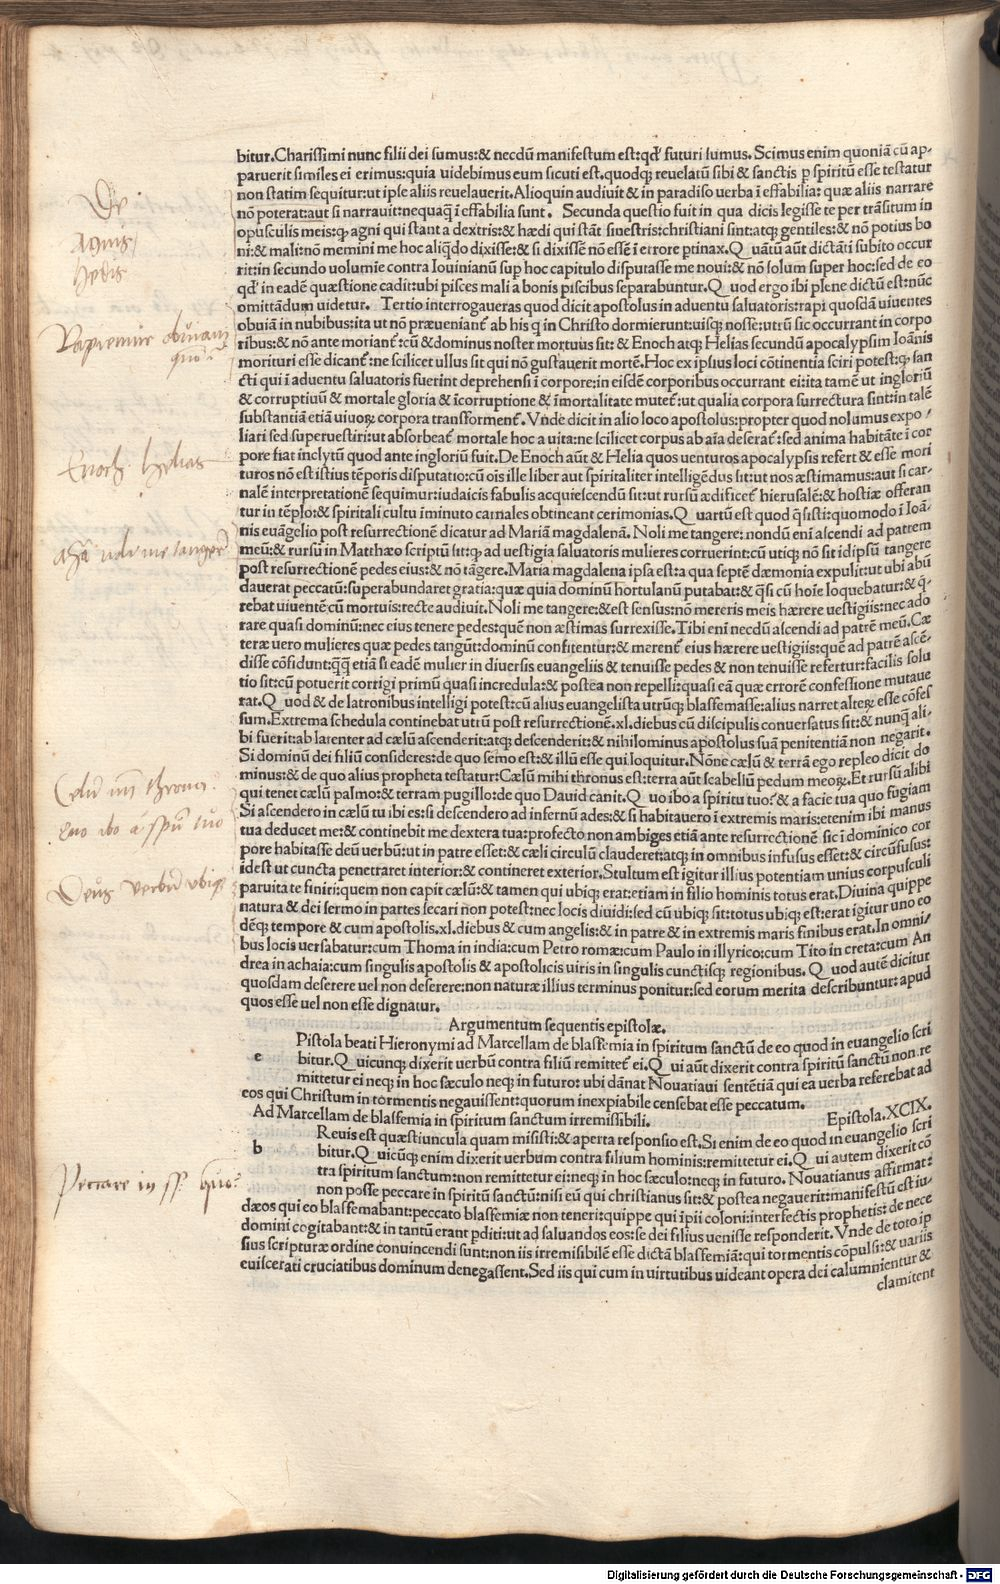 bitur.Charissimi nunc filii dei sumus:& necdū manifestum est:qd' futuri sumus. Scimus enim quoniā cū ap-
paruerit similes ei erimus:quia uidebimus eum sicuti est.quodq; reuelatū sibi & sanctis p spiritū esse testatur
non statim sequitur:ut ipse aliis reuelauerit.Alioquin audiuit & in paradiso uerba ī effabilia: quæ aliis narrare
nō poterat:aut si narrauit:nequaq̄ ī effabilia sunt. Secunda questio fuit in qua dicis legisse te per trāsitum in
opusculis meis:q; agni qui stant a dextris:& hædi qui stāt sinestris:christiani sint:atq; gentiles:& nō potius bo
ni:& mali:nō memini me hoc aliq̄do dixisse:& si dixissē nō essē ī errore ptinax.Q uātū aūt dictāti subito occur
rit:in secundo uolumie contra Iouinianū sup hoc capitulo disputasse me noui:& nō solum super hoc:sed de eo
qd' in eadē quæstione cadit:ubi pisces mali a bonis piscibus separabuntur.Q uod ergo ibi plene dictū est:nūc
omittādum uidetur. Tertio interrogaueras quod dicit apostolus in aduentu saluatoris:rapi quosdā uiuentes
obuiā in nubibus:ita ut nō præueniant' ab his q in Christo dormierunt:uisq; nosse:utrū sic occurrant in corpo
ribus:& nō ante moriant':cū & dominus noster mortuus sit: & Enoch atq; Helias secundū apocalypsim Ioānis
morituri esse dicant':ne scilicet ullus sit qui nō gustauerit mortē.Hoc ex ipsius loci cōtinentia sciri potest:q; san
cti qui ī aduentu saluatoris fuerint deprehensi ī corpore:in eisdē corporibus occurrant ei:ita tamē ut ingloriū
& corruptiuū & mortale gloria & īcorruptione & īmortalitate mutet':ut qualia corpora surrectura sint:in talē
substantiā etiā uiuoꝝ corpora transforment'. Vnde dicit in alio loco apostolus:propter quod nolumus expo/
liari sed superuestiri:ut absorbeat' mortale hoc a uita:ne scilicet corpus ab aīa deserat':sed anima habitāte ī cor
pore fiat inclytū quod ante ingloriū fuit.De Enoch aūt & Helia quos uenturos apocalypsis refert & esse mori
turos nō est istius tēporis disputatio:cū oīs ille liber aut spiritaliter intelligēdus sit:ut nos æstimamus:aut si car-
nalē interpretationē sequimur:iudaicis fabulis acquiescendū sit:ut rursū ædificet' hierusalē:& hostiæ offeran
tur in tēplo:& spiritali cultu īminuto carnales obtineant cerimonias.Q uartū est quod q̄sisti:quomodo ī Ioā-
nis euāgelio post resurrectionē dicatur ad Mariā magdalenā. Noli me tangere: nondū enī ascendi ad patrem
meū:& rursū in Matthæo scriptū sit:q; ad uestigia saluatoris mulieres corruerint:cū utiq; nō sit idipsū tangere
post resurrectionē pedes eius:& nō tāgere.Maria magdalena ipsa est:a qua septē dæmonia expulit:ut ubi abū
dauerat peccatū:superabundaret gratia:quæ quia dominū hortulanū putabat:& q̄si cū hoīe loquebatur:& q̄-
rebat uiuentē cū mortuis:recte audiuit.Noli me tangere:& est sensus:nō mereris meis hærere uestigiis:nec ado
rare quasi dominū:nec eius tenere pedes:quē non æstimas surrexisse.Tibi enī necdū ascendi ad patrē meū.Cæ
teræ uero mulieres quæ pedes tangūt:dominū confitentur:& merent' eius hærere uestigiis:quē ad patrē ascē-
disse cōfidunt:q̄q̄ etiā si eadē mulier in diuersis euangeliis & tenuisse pedes & non tenuisse refertur:facilis solu
tio sit:cū potuerit corrigi primū quasi incredula:& postea non repelli:quasi eā quæ errorē confessione mutaue
rat.Q uod & de latronibus intelligi potest:cū alius euangelista utrūq; blasfemasse:alius narret alteꝝ esse cōfes
sum.Extrema schedula continebat utrū post resurrectionē.xl.diebus cū discipulis conuersatus sit:& nunq̄ ali-
bi fuerit:ab latenter ad cælū ascenderit:atq; descenderit:& nihilominus apostolus suā penitentiā non negarit.
Si dominū dei filiū consideres:de quo sermo est:& illū esse qui loquitur. Nōne cælū & terrā ego repleo dicit do
minus:& de quo alius propheta testatur:Cælū mihi thronus est:terra aūt scabellū pedum meoꝝ.Et rursū alibi
qui tenet cælū palmo:& terram pugillo:de quo Dauid canit.Q uo ibo a spiritu tuo:& a facie tua quo fugiam
Si ascendero in cælū tu ibi es:si descendero ad infernū ades:& si habitauero ī extremis maris:etenim ibi manus
tua deducet me:& continebit me dextera tua:profecto non ambiges etiā ante resurrectionē sic ī dominico cor
pore habitasse deū uerbū:ut in patre esset:& cæli circulū clauderet:atq; in omnibus infusus esset:& circūfusus:
idest ut cuncta penetraret interior:& contineret exterior.Stultum est igitur illius potentiam unius corpusculi
paruitate finiri:quem non capit cælū:& tamen qui ubiq; erat:etiam in filio hominis totus erat.Diuina quippe
natura & dei sermo in partes secari non potest:nec locis diuidi:sed cū ubiq; sit:totus ubiq; est:erat igitur uno eo
dēq; tempore & cum apostolis.xl.diebus & cum angelis:& in patre & in extremis maris finibus erat.In omni/
bus locis uersabatur:cum Thoma in india:cum Petro romæ:cum Paulo in illyrico:cum Tito in creta:cum An
drea in achaia:cum singulis apostolis & apostolicis uiris in singulis cunctisq; regionibus. Q uod autē dicitur
quosdam deserere uel non deserere:non naturæ illius terminus ponitur:sed eorum merita describuntur: apud
quos esse uel non esse dignatur.
Argumentum sequentis epistolæ.
e Pistola beati Hieronymi ad Marcellam de blasfemia in spiritum sanctū de eo quod in euangelio scri
bitur.Q uicunq; dixerit uerbū contra filiū remittet' ei.Q ui aūt dixerit contra spiritū sanctū non re
mittetur ei neq; in hoc sæculo neq; in futuro: ubi dānat Nouatiaui sentētiā qui ea uerba referebat ad
eos qui Christum in tormentis negauissent:quorum inexpiabile censebat esse peccatum.
Ad Marcellam de blasfemia in spiritum sanctum irremissibili. Epistola.XCIX.
b Reuis est quæstiuncula quam misisti:& aperta responsio est.Si enim de eo quod in euangelio scri
bitur.Q uicūq; enim dixerit uerbum contra filium hominis:remittetur ei.Q ui autem dixerit cō
tra spiritum sanctum:non remittetur ei:neq; in hoc sæculo:neq; in futuro. Nouatianus affirmat:
non posse peccare in spiritū sanctū:nisi eū qui christianus sit:& postea negauerit:manifestū est iu-
dæos qui eo blasfemabant:peccato blasfemiæ non teneri:quippe qui īpii coloni:interfectis prophetis: de nece
domini cogitabant:& in tantū erant pditi:ut ad saluandos eos:se dei filius uenisse responderit. Vnde de toto ip
sius scripturæ ordine conuincendi sunt:non iis irremisibilē esse dictā blasfemiā:qui tormentis cōpulsi:& uariis
euiscerati cruciatibus dominum denegassent.Sed iis qui cum in uirtutibus uideant opera dei calumnientur &
clamitent
De
Agnis/
Hedis
Rapiemur obuiam
quo
Enoch Helias
noli me tangere
Celū mihi thronus.
Quo ibo a spū tuo
Deus verbū vbiq;
Peccare in sp̄.
Digitalisierung gefördert durch die Deutsche Forschungsgemeinschaft - DFG